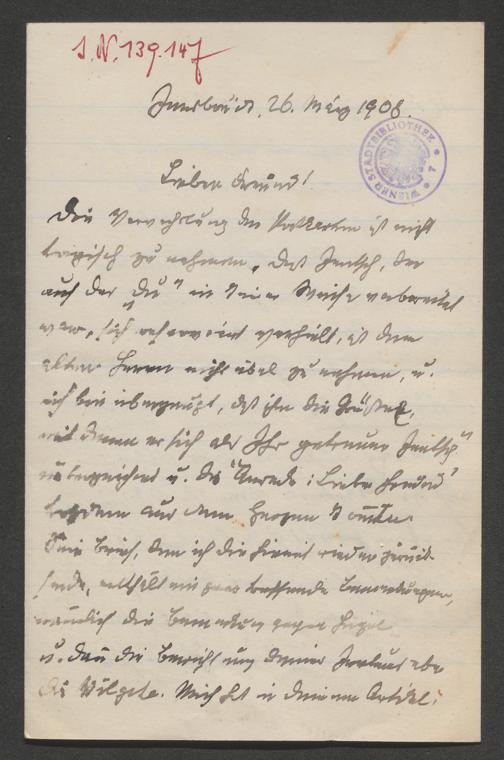 I.N. 139.147
Innsbruck, 26. März 1908.
WIENER STADTBIBLIOTHEK
Lieber Freund!
Die Verwechslung der Postkarten ist nicht
tragisch zu nehmen. Daß Jentsch, der
auf das "Du" in keiner Weise vorbereitet
war, sich reserviert verhält, ist dem
alten Herrn nicht übel zu nehmen, u.
ich bin überzeugt, daß ihm die
mit denen er sich als "Ihr getreuer Jentsch"
unterzeichnet u. die Anrede: "Lieber Freund"
trotzdem aus dem Herzen
Dein Brief, den ich Dir hiemit wieder zurück-
sende, enthält ein paar treffende Bemerkungen,
nämlich die Bemerkung gegen
u. dann die
Mich hat in Deinem Artikel: